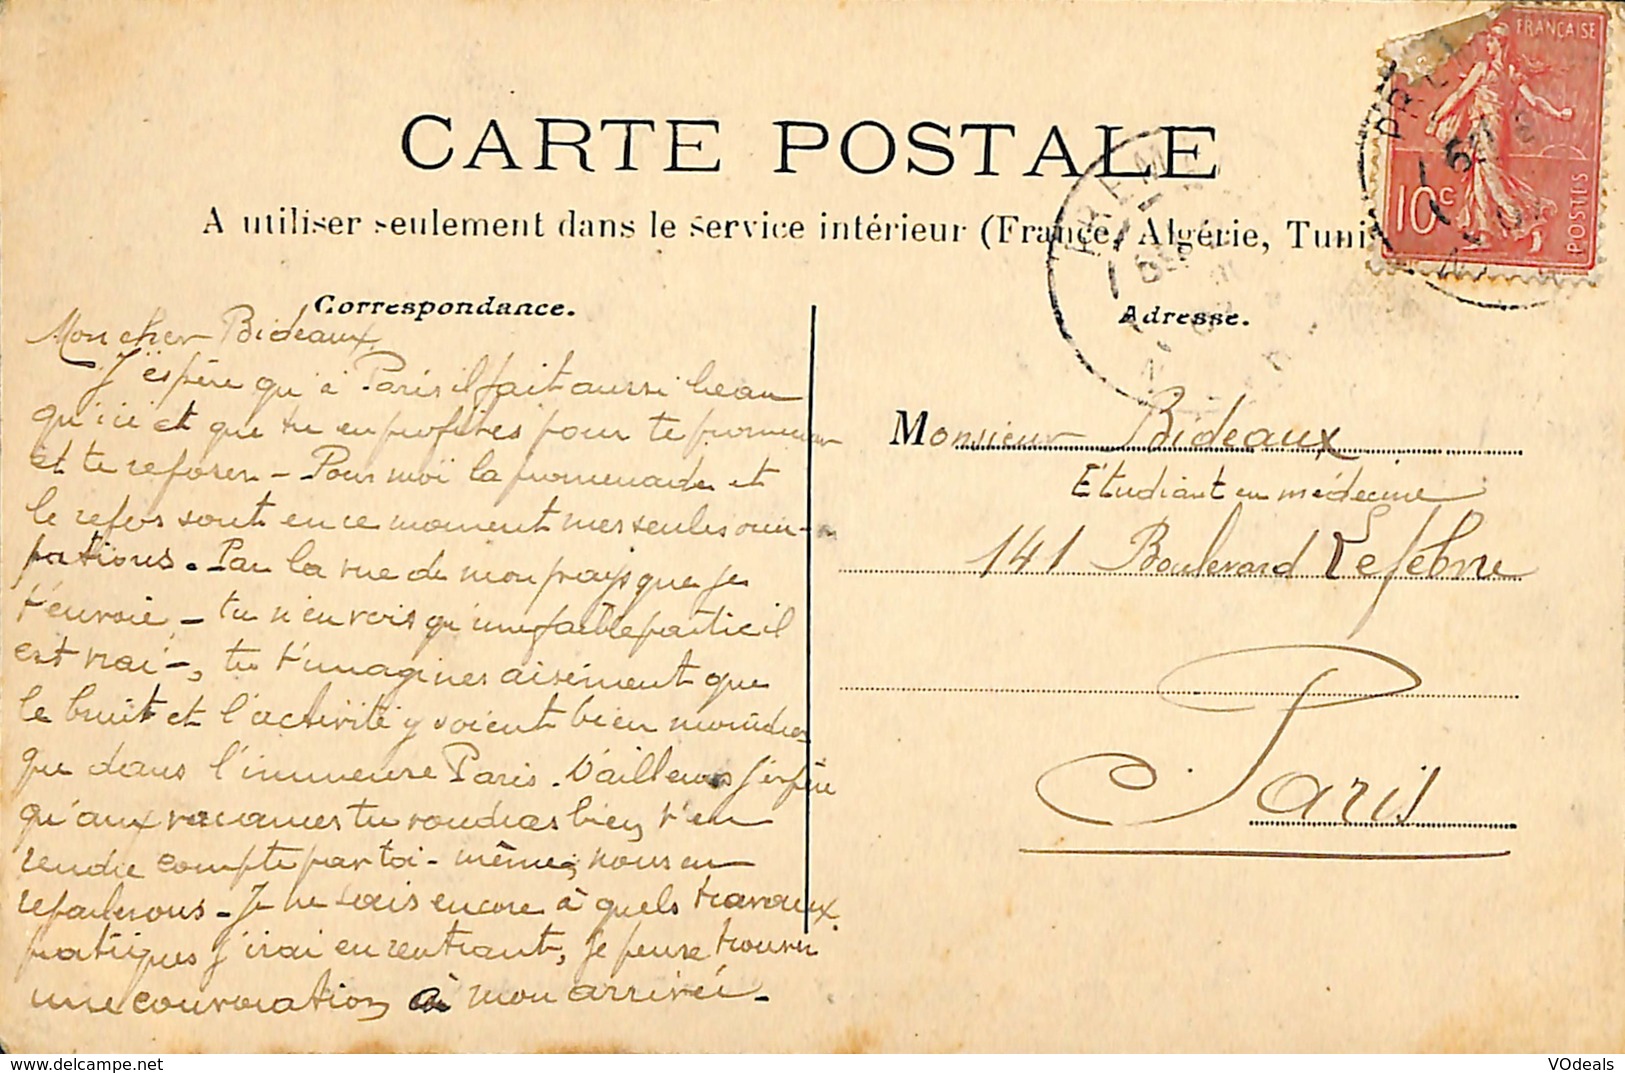 FRANÇAISE
10c
POSTES
CARTE POSTALE
A utiliser seulement dans le service intérieur (France, Algérie, Tuni
Correspondance.
Adresse.
Mon cher Bideaux,
J'espère qu'à Paris il fait aussi beau
qu'ici et que tu en profites pour te promener
et te reposer – Pour moi la promenade et
le repos sont en ce moment mes seules occu-
pations. Par la vue de mon pays que je
t'envoie – tu n'en vois qu'une faible partie il
est vrai –, tu t'imagines aisément que
le bruit et l'activité y soient bien moindres
que dans l'immense Paris. D'ailleurs j'espère
qu'aux vacances tu voudras bien t'en
rendre compte par toi-même, nous en
reparlerons – Je ne sais encore à quels travaux
pratiques j'irai en rentrant, je pense trouver
une convocation à mon arrivée –
Monsieur Bideaux
Etudiant en médecine
141 Boulevard Lefebvre
Paris
VOdeals Delcampe.net
VOdeals